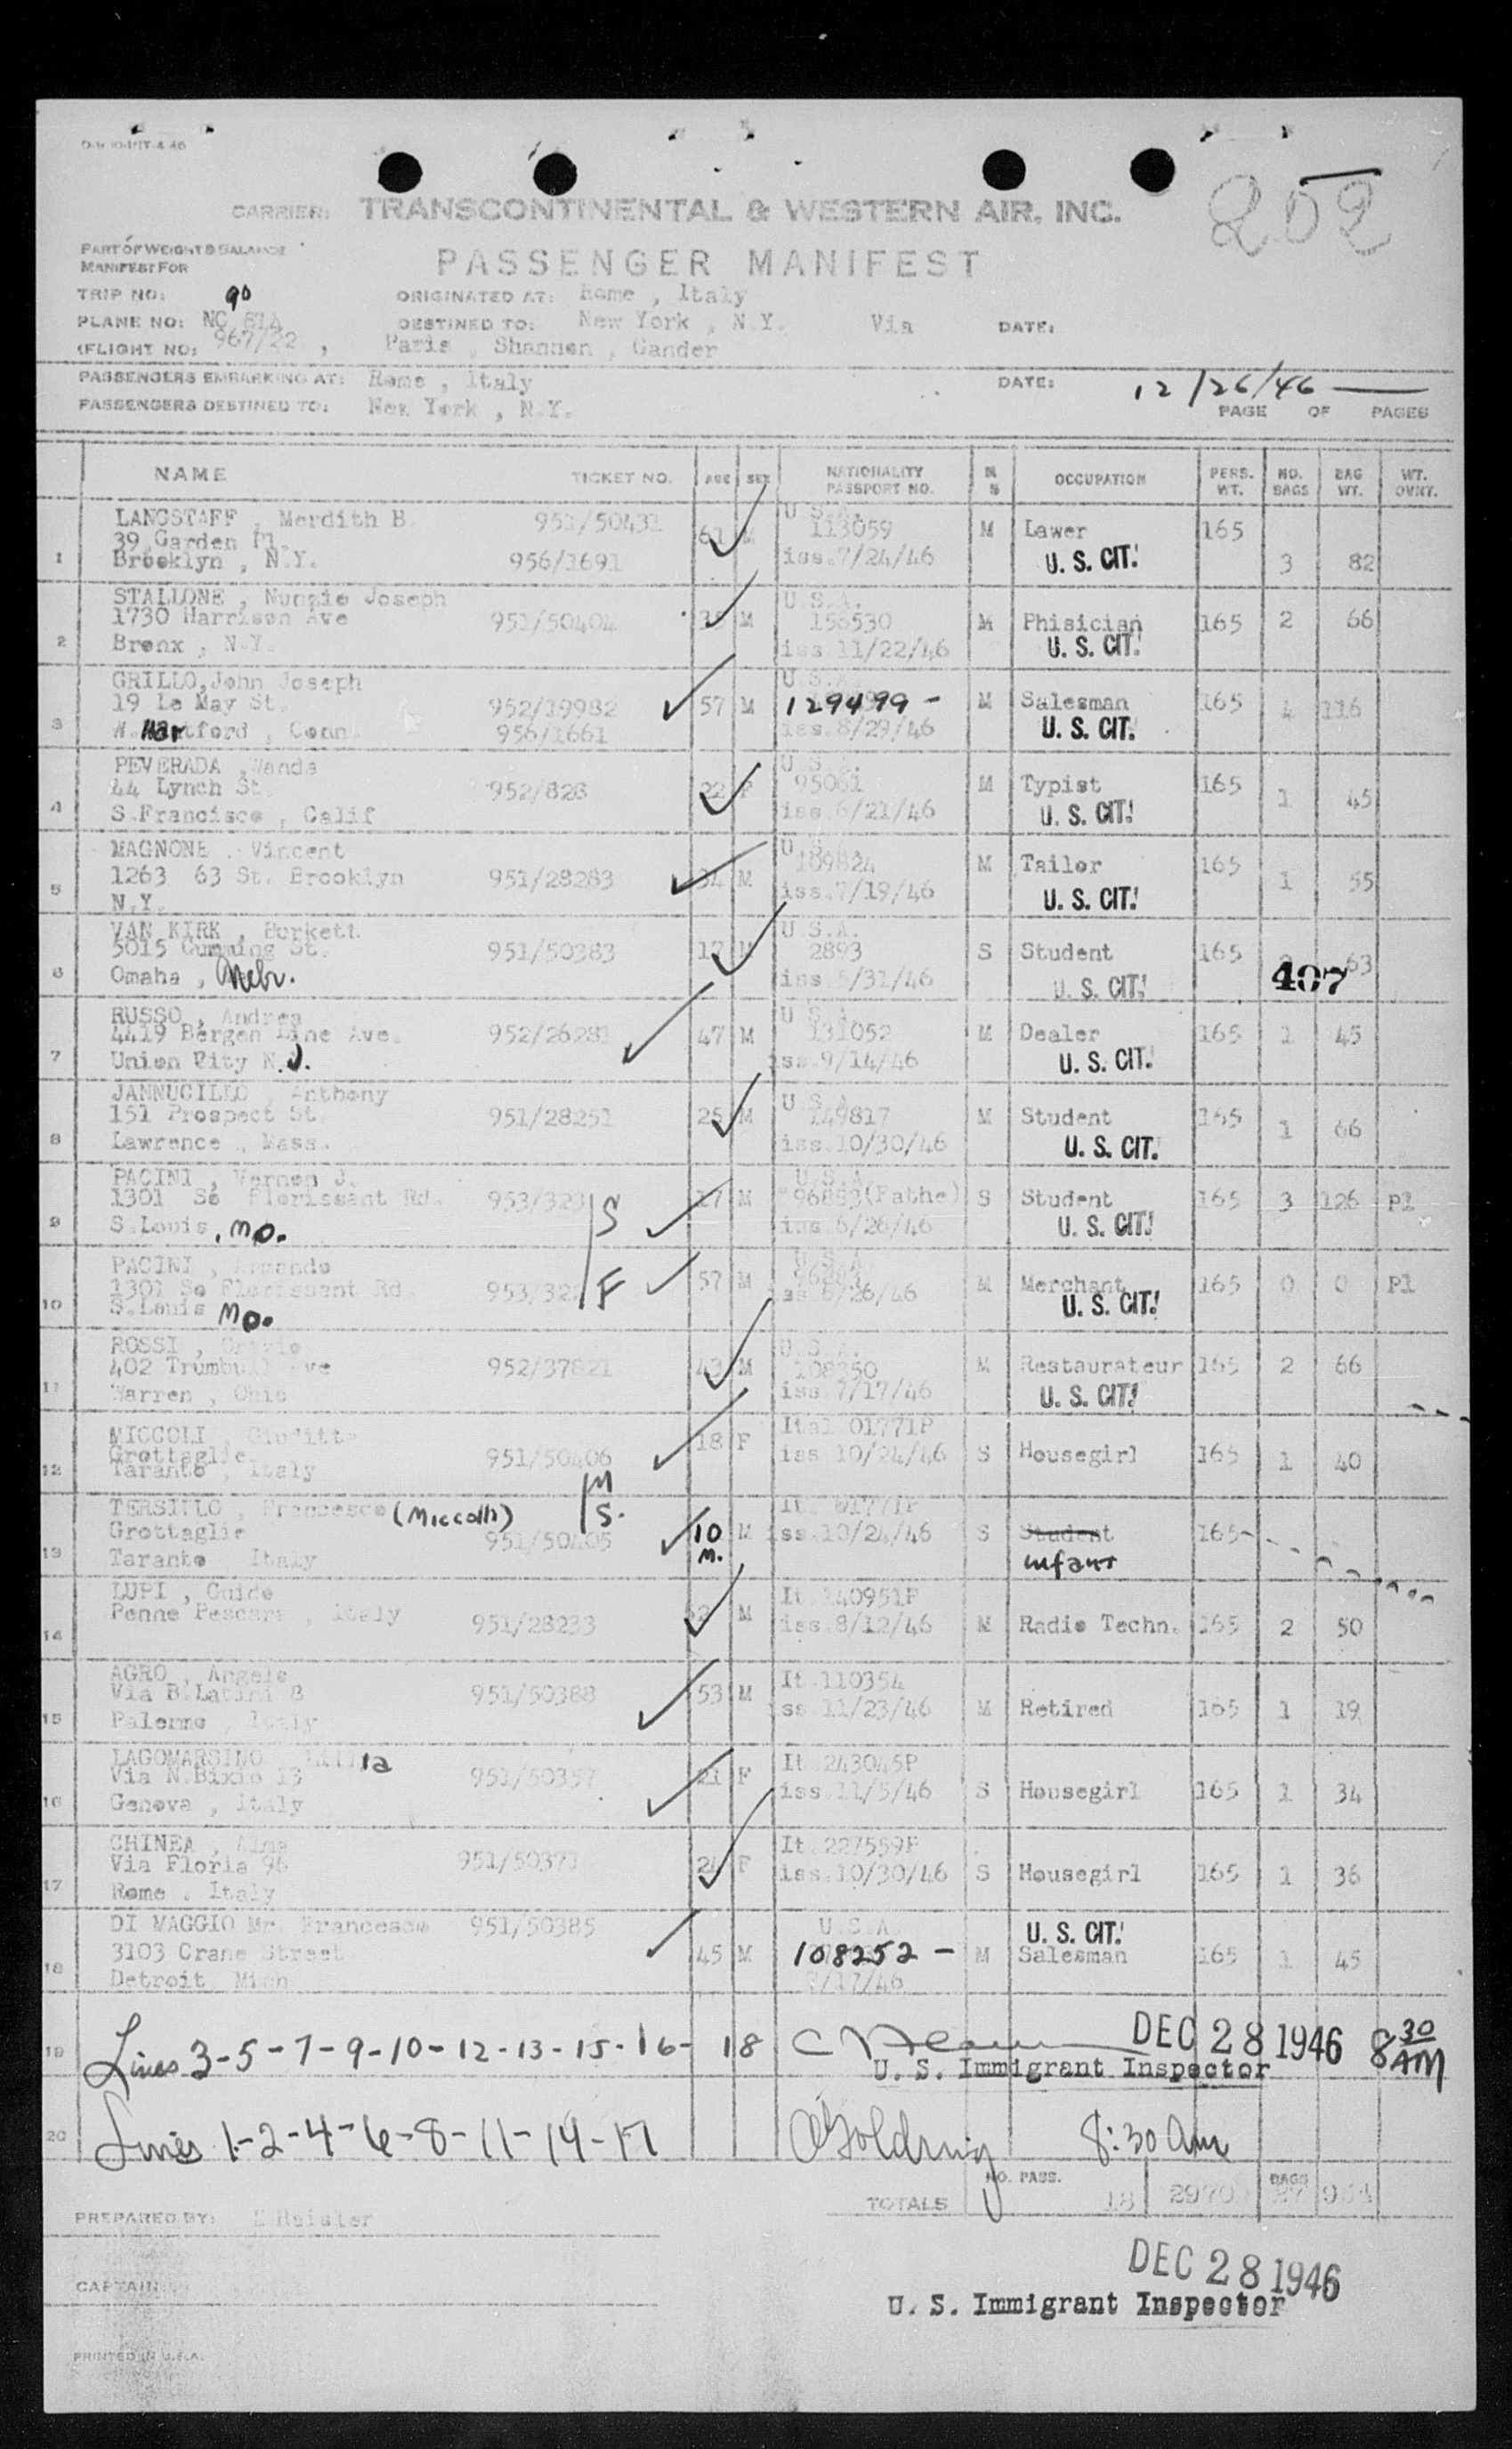 202
CARRIER: TRANSCONTINENTAL & WESTERN AIR, INC.
PART OF WEIGHT & BALANCE
MANIFEST FOR
PASSENGER MANIFEST
TRIP NO: 90 ORIGINATED AT: Rome , Italy
PLANE NO: NC DESTINED TO: New York , N.Y. Via DATE:
(FLIGHT NO: 967/22 , Paris , Shannon , Gander
PASSENGERS EMBARKING AT: Rome , Italy DATE: 12/26/46
PASSENGERS DESTINED TO: New York , N.Y. PAGE OF PAGES
NAME TICKET NO. AGE SEX NATIONALITY PASSPORT NO. M S OCCUPATION PERS. WT. NO. BAGS BAG WT. WT. OVNT.
LANGSTAFF , Merdith B. 951/50431 U.S.A.
39 Garden Pl. 61 M 113059 M Lawer 165
1 Brooklyn , N.Y. 956/1691 iss.7/24/46 U. S. CIT. 3 82
STALLONE , Nunzie Joseph U.S.A.
1730 Harrison Ave 951/50404 35 M 156530 M Phisician 165 2 66
2 Bronx , N.Y. iss.11/22/46 U. S. CIT.
GRILLO,John Joseph U.S.A.
19 Le May St. 952/19982 57 M 129499 - M Salesman 165 4 116
3 W.Hartford , Conn. 956/1661 iss.8/29/46 U. S. CIT.
PEVERADA ,Wanda U.S.A.
44 Lynch St. 952/828 22 F 95061 M Typist 165
4 S.Francisco , Calif iss.6/21/46 U. S. CIT. 1 45
MAGNONE , Vincent U.S.A.
1263 63 St. Brooklyn 951/28283 34 M 109824 M Tailor 165
5 N.Y. iss.7/19/46 U. S. CIT. 1 55
VAN KIRK , Burkett U.S.A.
5015 Cumming St. 951/50383 17 M 2893 S Student 165 63
6 Omaha , Nebr. iss.5/31/46 U. S. CIT. 407
RUSSO , Andrea U.S.A.
4419 Bergen Line Ave. 952/26281 47 M 131052 M Dealer 165 1 45
7 Union City N.J. iss.9/14/46 U. S. CIT.
JANNUCILLO , Anthony U.S.A.
151 Prospect St. 951/28251 25 M 149817 M Student 165
8 Lawrence , Mass. iss.10/30/46 U. S. CIT. 1 66
PACINI , Vernon J. U.S.A.
1301 So Florissant Rd. 953/323 S 17 M 96883(Fathe) S Student 165 3 126 Pl
9 S.Louis , Mo. iss.6/26/46 U. S. CIT.
PACINI , Armando U.S.A.
1301 So Florissant Rd 953/32 F 57 M 96883 M Merchant 165 0 0 Pl
10 S.Louis Mo. iss.6/26/46 U. S. CIT.
ROSSI , U.S.A.
402 Trumbull Ave 952/37821 43 M 108350 M Restaurateur 165 2 66
11 Warren , Ohio iss.7/17/46 U. S. CIT.
MICCOLI , Giuditta Ital 01771P
Grottaglie 951/50406 18 F iss 10/24/46 S Housegirl 165 1 40
12 Taranto , Italy
M
TERSILLO , Francesco (Miccolli) S. It. 01771P
Grottaglie 951/50405 10 M. M iss.10/24/46 S Student 165
13 Taranto Italy infant
LUPI , Guido It 140951P
Penne Pescara , Italy 951/28233 M iss.8/12/46 M Radio Techn. 165 2 50
14
AGRO , Angelo It.110354
Via B.Latini 8 951/50388 53 M iss.11/23/46 M Retired 165 1 19
15 Palermo , Italy
LAGOMARSINO , ia It.243045P
Via N.Bixio 13 951/50357 21 F iss.11/5/46 S Housegirl 165 1 34
16 Genova , Italy
CHINEA , Alma It.227559P
Via Floria 96 951/50371 24 F iss.10/30/46 S Housegirl 165 1 36
17 Rome . Italy
DI MAGGIO Mr. Francesco 951/50385 U.S.A. U. S. CIT.
3103 Crane Street 45 M 108252 - M Salesman 165 1 45
18 Detroit Mich 7/17/46
19 Lines 3-5-7-9-10-12-13-15-16-18 DEC 28 1946 8 30 AM
U. S. Immigrant Inspector
20 Lines 1-2-4-6-8-11-14-17 Goldring 8:30 am
TOTALS NO. PASS. 18 2970 BAGS 27 954
PREPARED BY: Heister
DEC 28 1946
CAPTAIN:
U. S. Immigrant Inspector
PRINTED IN U.S.A.